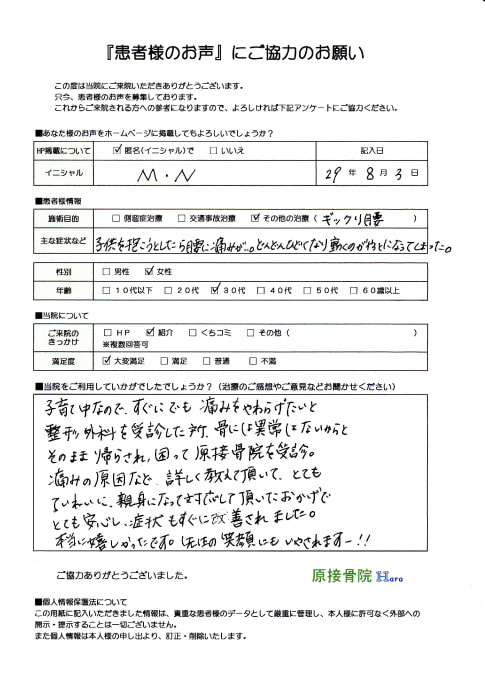 『患者様のお声』にご協力のお願い
この度は当院にご来院いただきありがとうございます。
只今、患者様のお声を募集しております。
これからご来院される方への参考になりますので、よろしければ下記アンケートにご協力ください。
■あなた様のお声をホームページに掲載してもよろしいでしょうか？
HP掲載について ☑ 匿名(イニシャル)で □ いいえ 記入日
イニシャル M・N 29 年 8 月 3 日
■患者様情報
施術目的 □ 側弯症治療 □ 交通事故治療 ☑ その他の治療 ( ギックリ腰 )
主な症状など 子供を抱こうとしたら腰に痛みが…。どんどんひどくなり動くのがやっとになってしまった。
性別 □ 男性 ☑ 女性
年齢 □ 10代以下 □ 20代 ☑ 30代 □ 40代 □ 50代 □ 60歳以上
■当院について
ご来院のきっかけ □ HP ☑ 紹介 □ くちコミ □ その他 ( )
※複数回答可
満足度 ☑ 大変満足 □ 満足 □ 普通 □ 不満
■当院をご利用していかがでしたでしょうか？（治療のご感想やご意見などお聞かせください）
子育て中なので、すぐにでも痛みをやわらげたいと
整形外科を受診した所、骨には異常はないからと
そのまま帰らされ、困って原接骨院を受診。
痛みの原因など、詳しく教えて頂いて、とても
ていねいに、親身になって対応して頂いたおかげで
とても安心し、症状もすぐに改善されました。
本当に嬉しかったです。先生の笑顔にもいやされますー!!
ご協力ありがとうございました。
原接骨院 Hara
■個人情報保護法について
この用紙に記入いただきました情報は、貴重な患者様のデータとして厳重に管理し、本人様に許可なく外部への
開示・提示することは一切ございません。
また個人情報は本人様の申し出より、訂正・削除いたします。